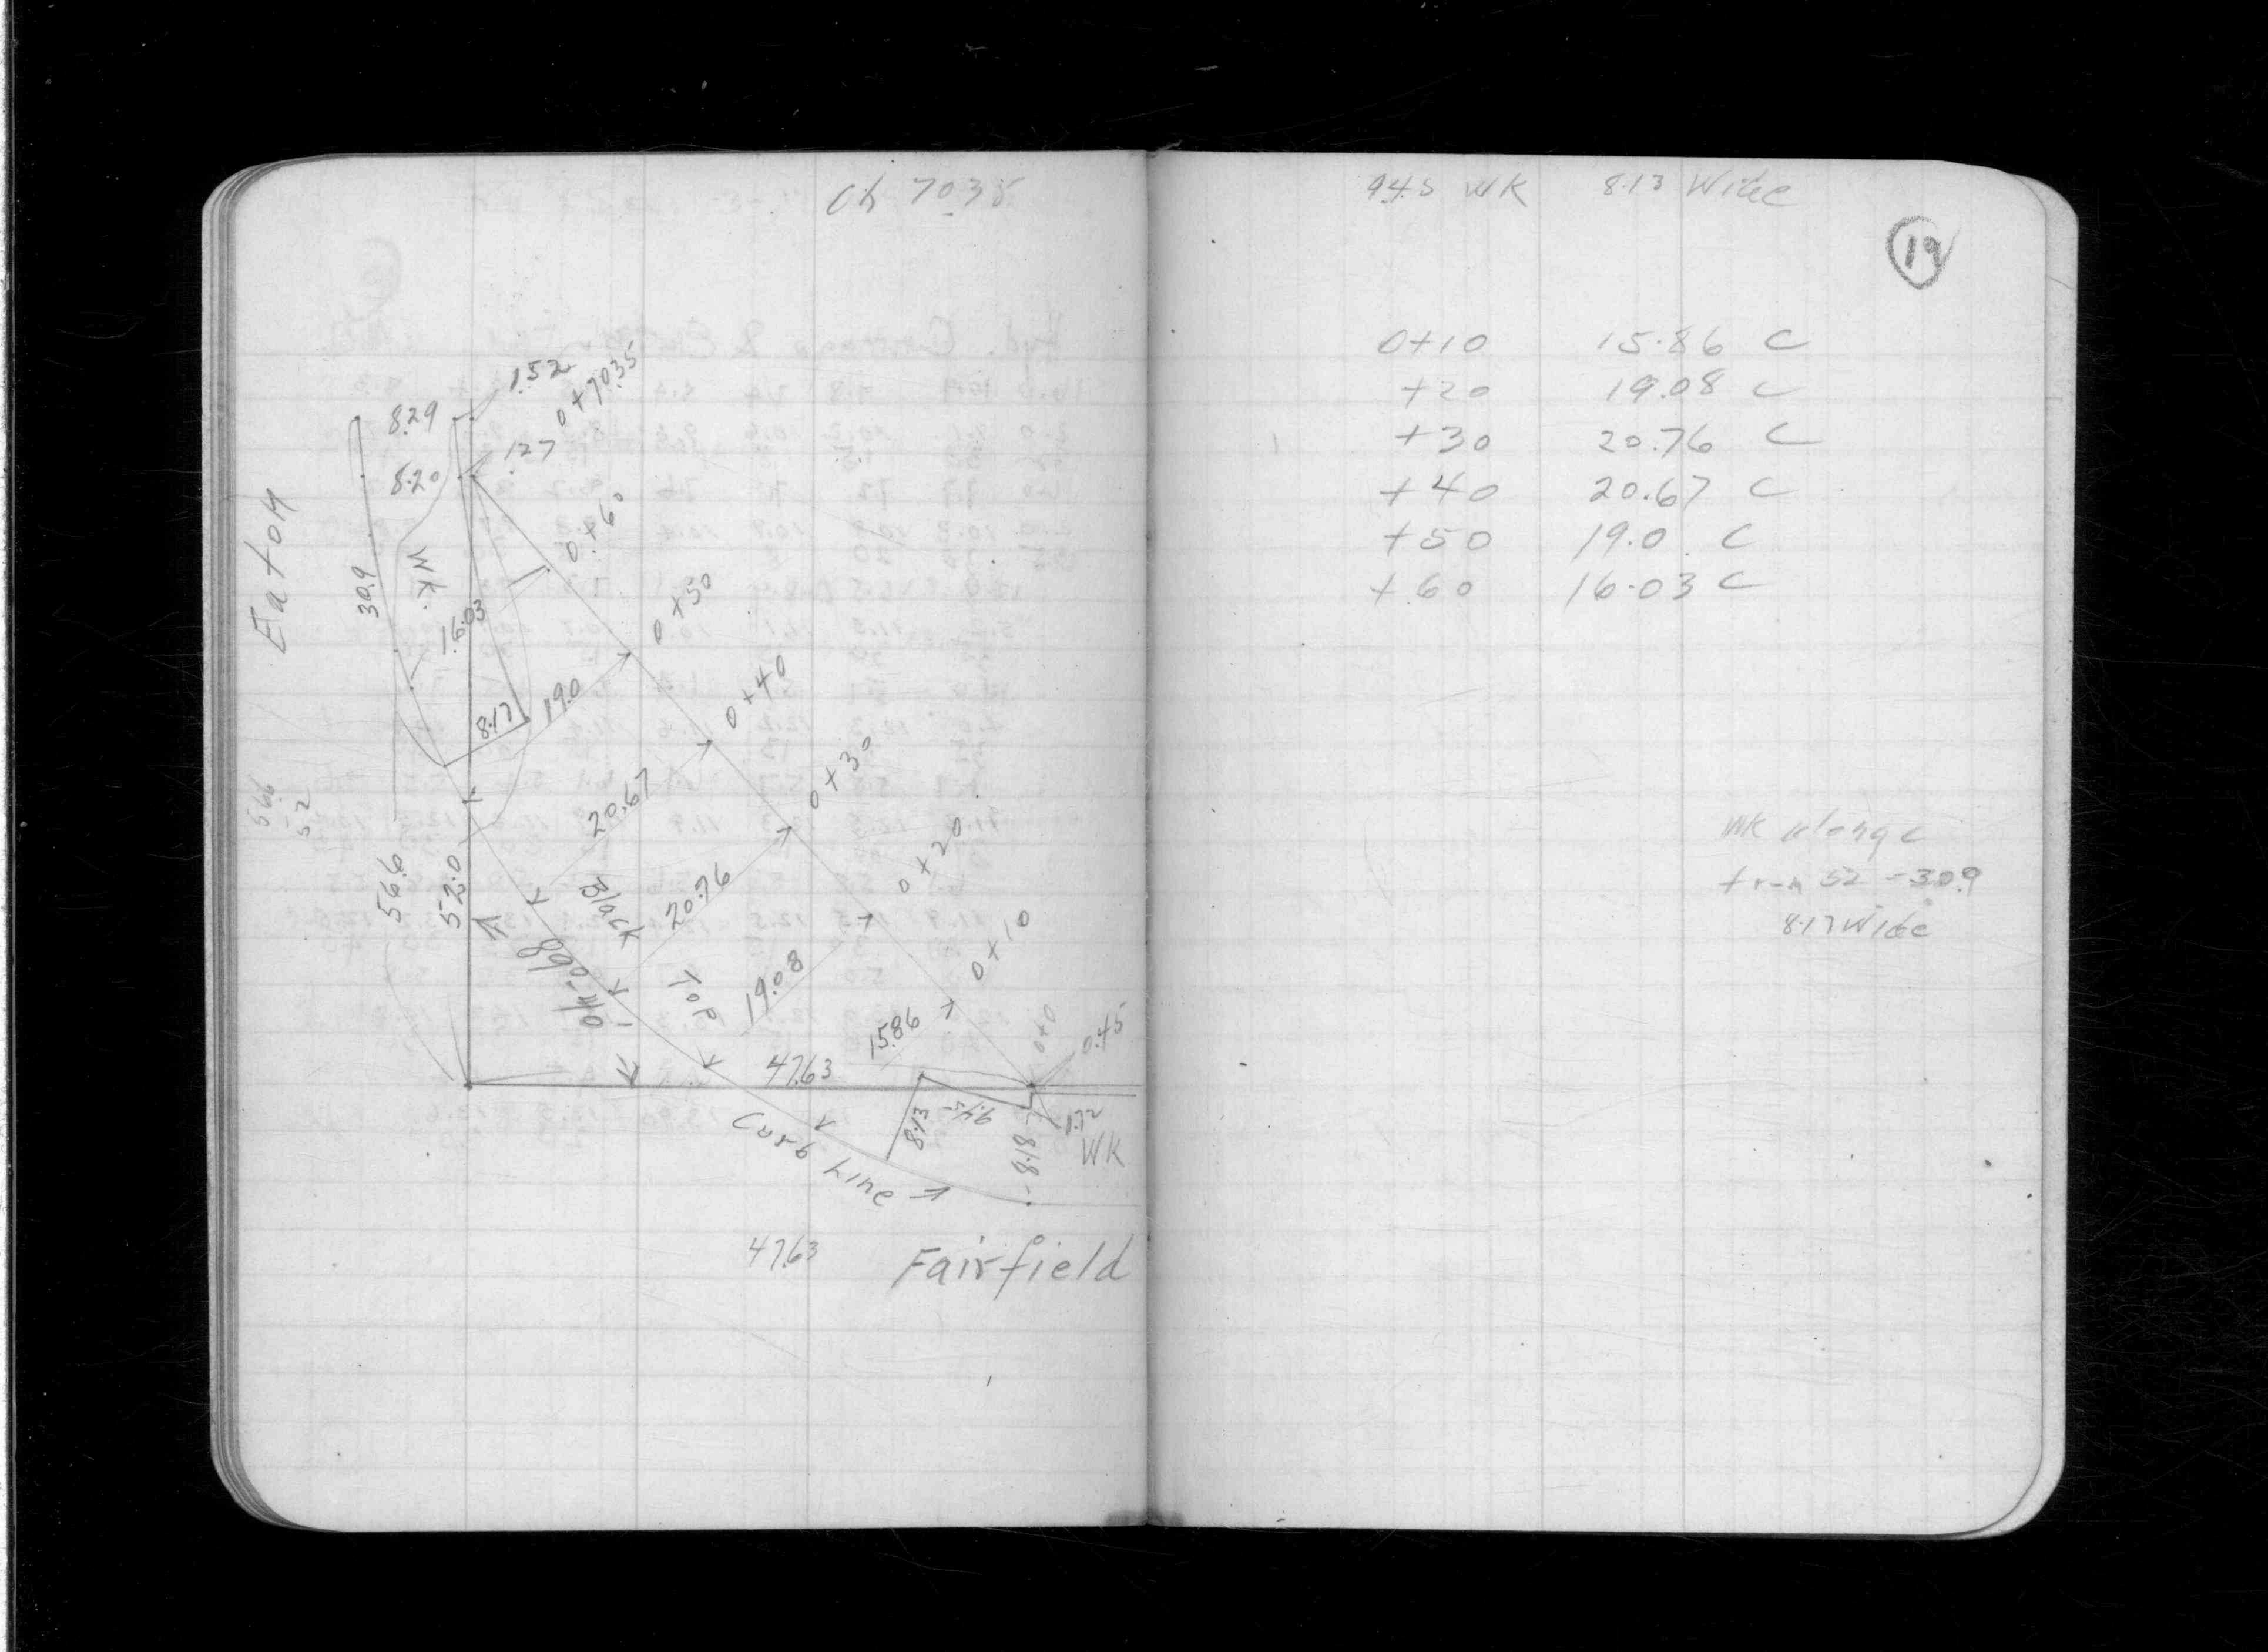 Ch 70.35
1.52
0+70.35
8.29
1.27
8.20
Eaton
0+60
WK.
30.9
16.03
0+50
8.17
19.0
0+40
20.67
0+30
56.6
52
56.6
52.0
Black
Top
20.76
0+20
19.08
0+10
15.86
0+0
0.45
47.63
8.13
1.72
8.18
WK
Curb Line
47.63
Fairfield
94.5 WK 8.13 Wide
19
0+10 15.86 C
+20 19.08 C
+30 20.76 C
+40 20.67 C
+50 19.0 C
+60 16.03 C
WK along C
from 52 - 30.9
8.17 Wide